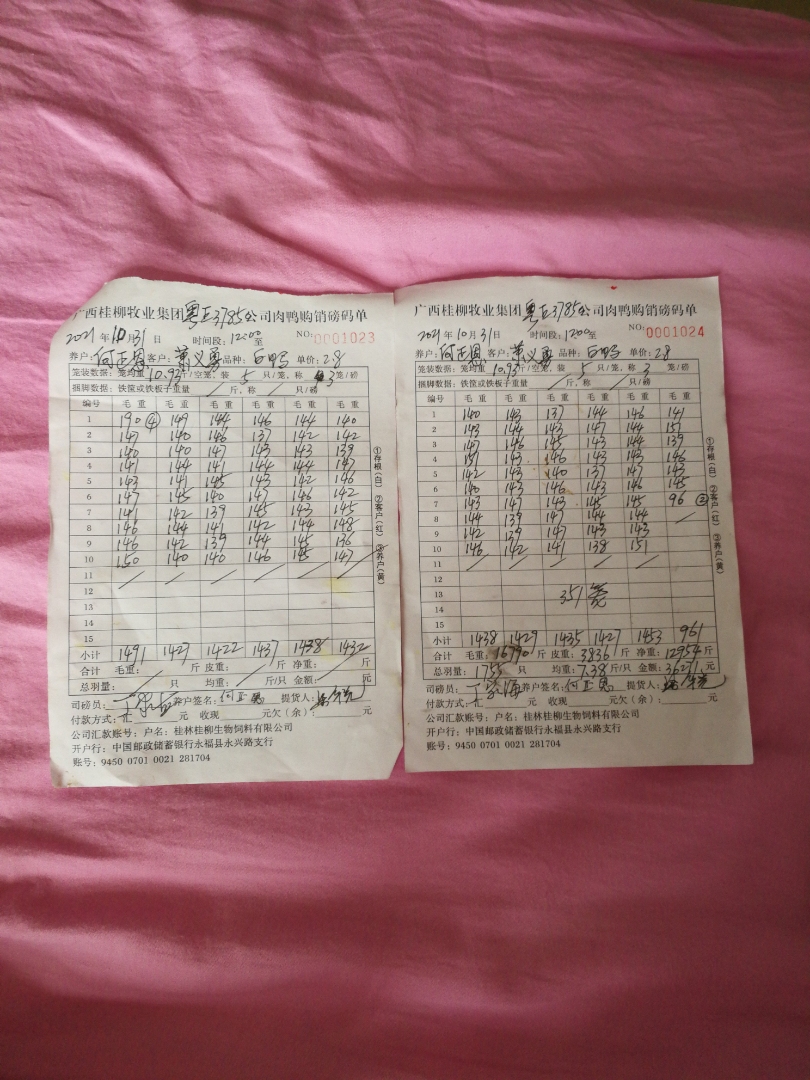 广西桂柳牧业集团粤E3785公司肉鸭购销磅码单
2021年10月31日 时间段:1200至 NO:0001023
养户:何正恩 客户:萧义勇 品种:白鸭 单价:2.8
笼装数据:笼均重10.93斤/空笼,装5只/笼,称3笼/磅
捆脚数据:铁筐或铁板子重量/斤,称/只/磅
编号 毛重 毛重 毛重 毛重 毛重 毛重
1 190④ 149 144 146 144 140
2 147 140 146 137 142 142
3 140 140 147 143 143 139
4 141 144 141 144 144 147
5 143 141 145 143 142 146
6 147 145 140 147 146 142
7 141 142 139 145 143 145
8 146 144 141 142 144 148
9 146 142 139 144 145 136
10 150 140 140 146 145 147
11 / / / / / /
12
13
14
15
小计 1491 1427 1422 1437 1438 1432
合计 毛重:/斤 皮重:/斤 净重:/斤
总羽量:/只 均重:/斤/只 金额:/元
司磅员: 养户签名:何正恩 提货人:
付款方式:汇 元 收现 元欠(余): 元
公司汇款账号:户名:桂林桂柳生物饲料有限公司
开户行:中国邮政储蓄银行永福县永兴路支行
账号:9450 0701 0021 281704
①存根(白) ②客户(红) ③养户(黄)
广西桂柳牧业集团粤E3785公司肉鸭购销磅码单
2021年10月31日 时间段:1200至 NO:0001024
养户:何正恩 客户:萧义勇 品种:白鸭 单价:2.8
笼装数据:笼均重10.93斤/空笼,装5只/笼,称3笼/磅
捆脚数据:铁筐或铁板子重量/斤,称/只/磅
编号 毛重 毛重 毛重 毛重 毛重 毛重
1 140 143 137 144 146 141
2 143 144 143 147 144 151
3 147 146 145 143 144 139
4 151 143 146 143 143 146
5 142 143 140 137 147 143
6 140 143 146 143 146 145
7 143 147 143 145 145 96②
8 144 139 147 144 144 /
9 142 139 147 143 143
10 146 142 141 138 151
11 / / / / /
12
13 351笼
14
15
小计 1438 1429 1435 1427 1453 961
合计 毛重:16790斤 皮重:3836斤 净重:12954斤
总羽量:1755只 均重:7.38斤/只 金额:36271元
司磅员: 养户签名:何正恩 提货人:
付款方式:汇 元 收现 元欠(余): 元
公司汇款账号:户名:桂林桂柳生物饲料有限公司
开户行:中国邮政储蓄银行永福县永兴路支行
账号:9450 0701 0021 281704
①存根(白) ②客户(红) ③养户(黄)